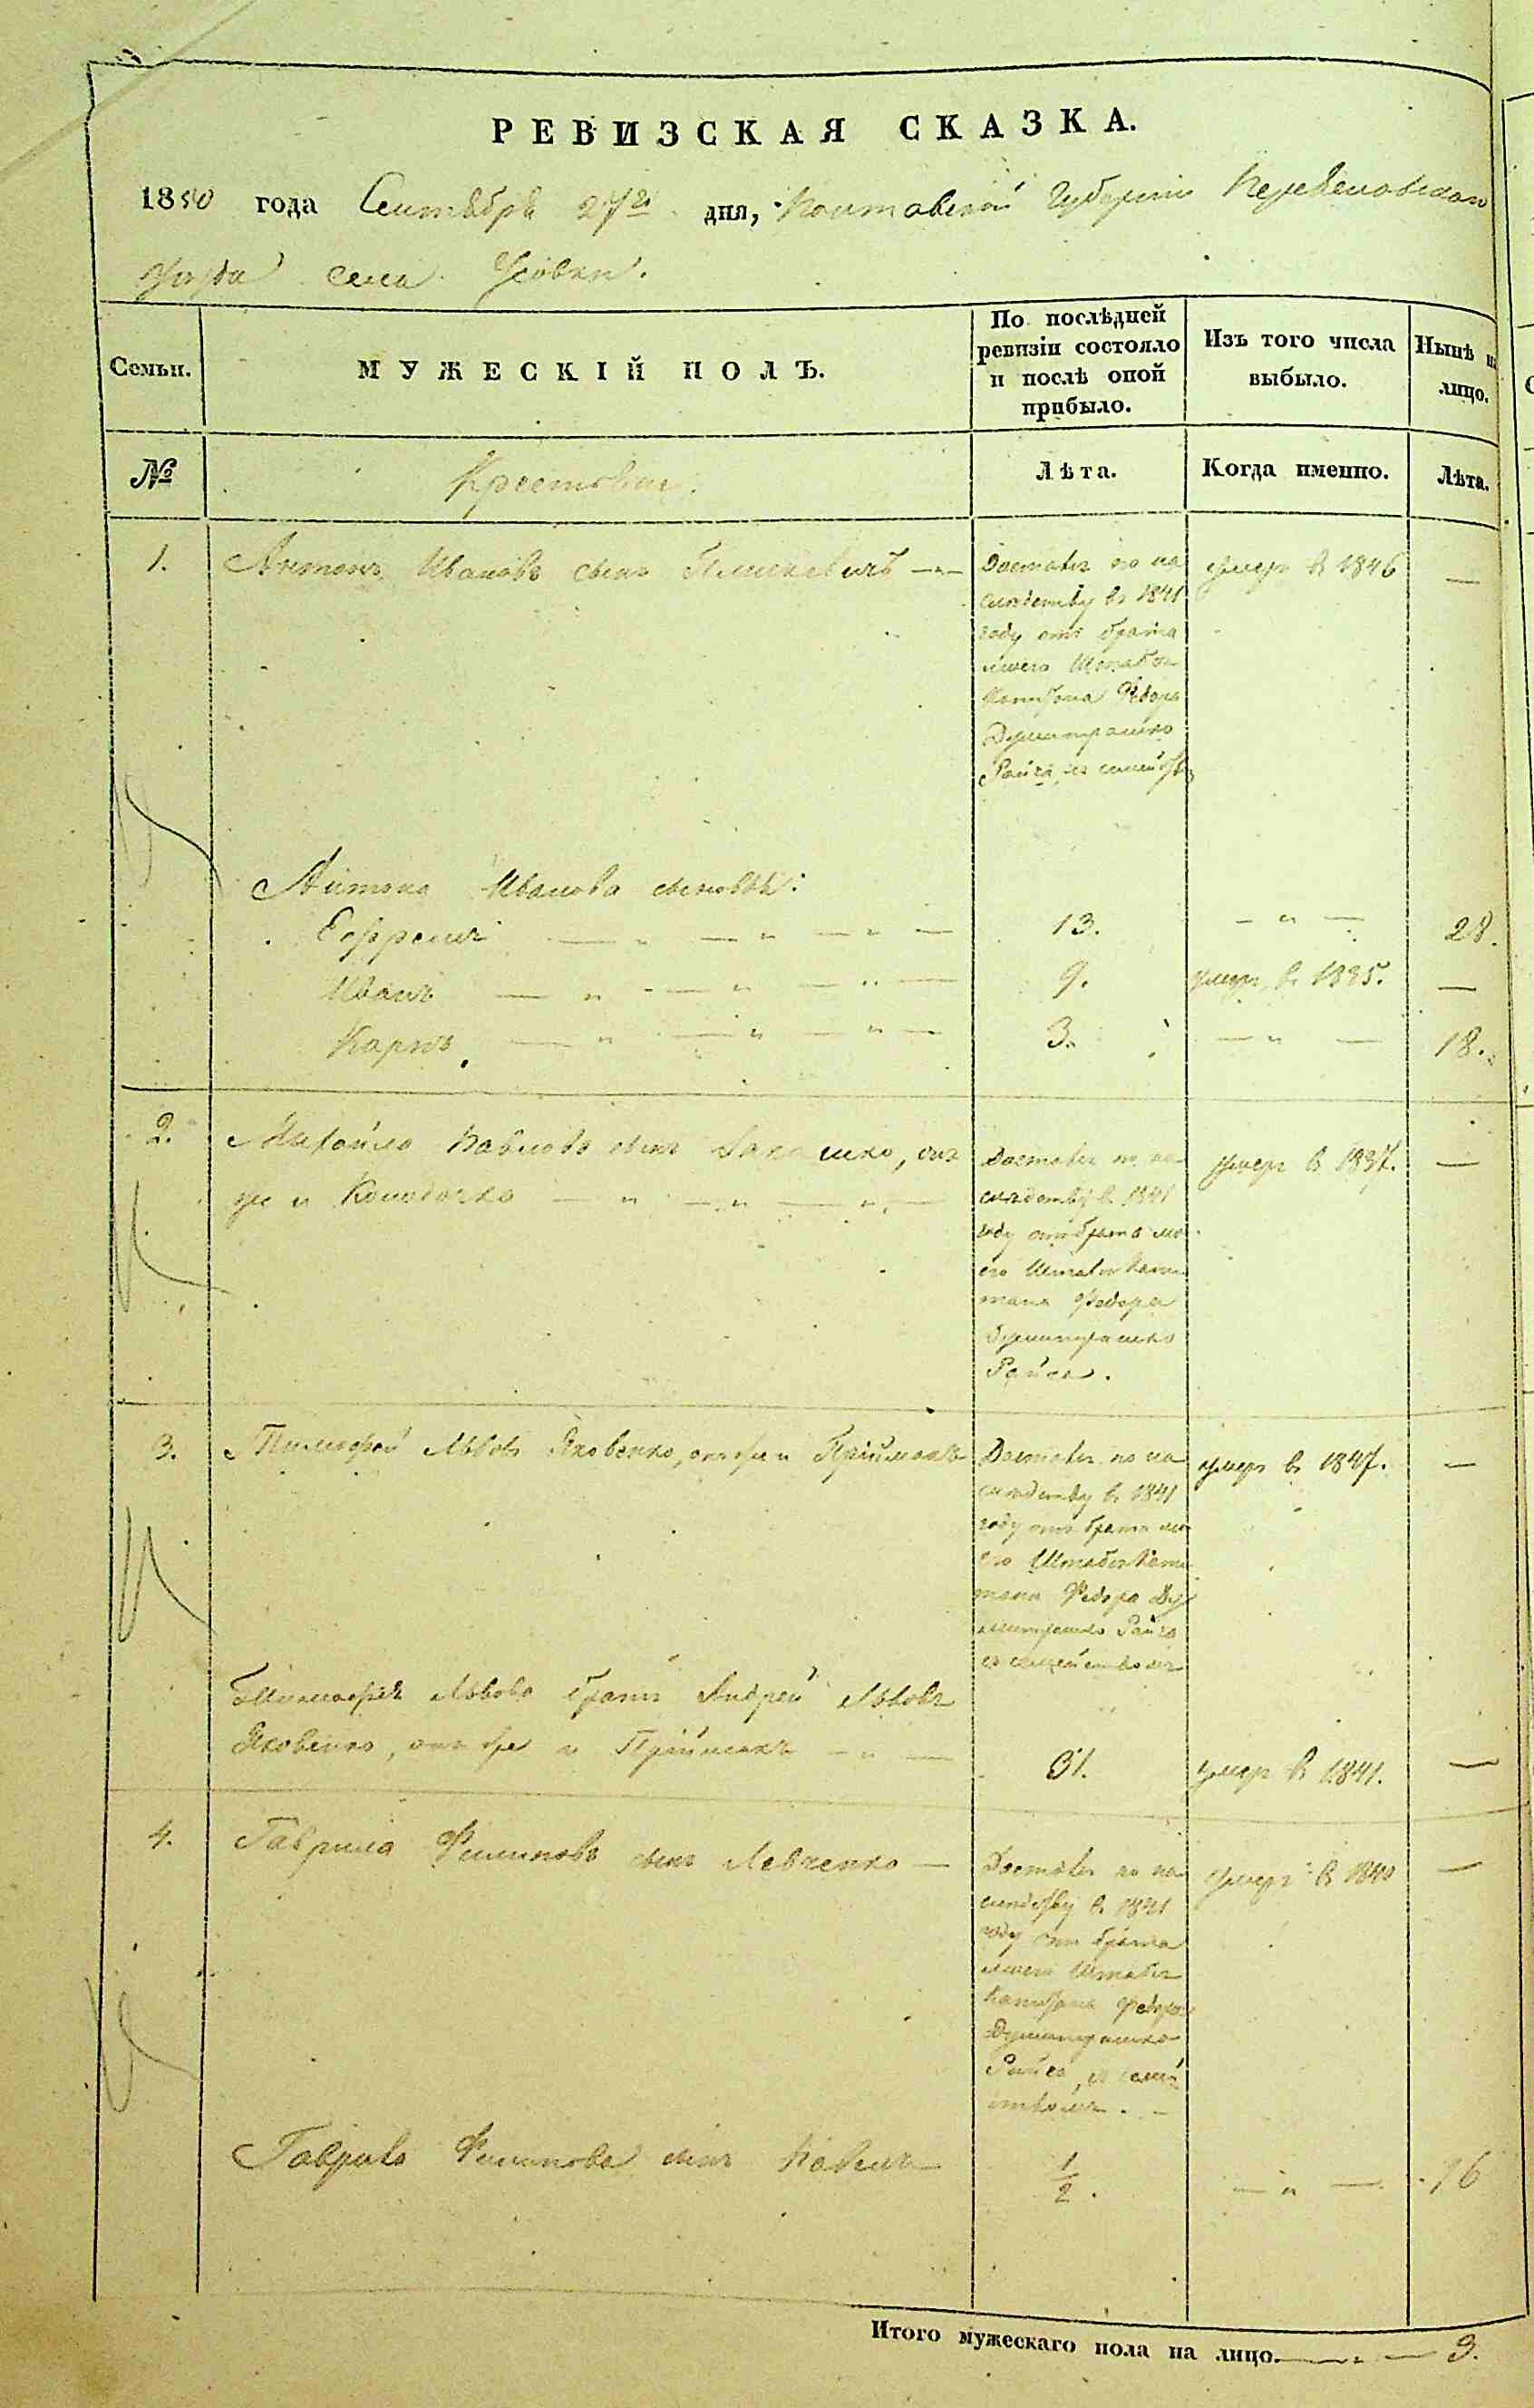 РЕВИЗСКАЯ СКАЗКА.
1850 года Сентября 27го дня, Полтавской Губернии Переяславского
уезда села Усовки.
Семьи.
МУЖЕСКІЙ ПОЛЪ.
По послѣдней
ревизіи состояло
и послѣ оной
прибыло.
Изъ того числа
выбыло.
Нынѣ на
лицо.
№
Крестьяне.
Лѣта.
Когда именно.
Лѣта.
1.
Антонъ Ивановъ сынъ
Досталъ по на
слѣдству въ 1841
году отъ брата
моего Штабсъ
Капитана Федора
Думитрашко
Райча съ
умеръ въ 1846
—
Антона Иванова сыновья:
Ефремъ
13.
— " —
28.
Иванъ
9.
умеръ въ 1835.
—
Карпъ
3.
— " —
18.
2.
Михайло Павловъ сынъ онъ
же и Колодочко
Досталъ по на
слѣдству въ 1841
году отъ брата мо
его Штабсъ Капи
тана Федора
Думитрашко
Райча.
умеръ въ 1837.
—
3.
Тимофей Львовъ Яковенко, онъ же и Пріймакъ
Досталъ по на
слѣдству въ 1841
году отъ брата мо
его Штабсъ Капи
тана Федора Ду
митрашко Райча
съ семействомъ
умеръ въ 1847.
—
Тимофея Львова братъ Андрей Львовъ
Яковенко, онъ же и Пріймакъ — " —
31.
умеръ въ 1841.
—
4.
Гаврила Филиповъ сынъ Левченко —
Досталъ по на
слѣдству въ 1841
году отъ брата
моего Штабсъ
Капитана Федора
Думитрашко
Райча, съ семей
ствомъ. —
умеръ въ 1840
—
Гаврила Филипова сынъ Павелъ
1/2.
— " —
16
Итого мужескаго пола на лицо. — " — 3.